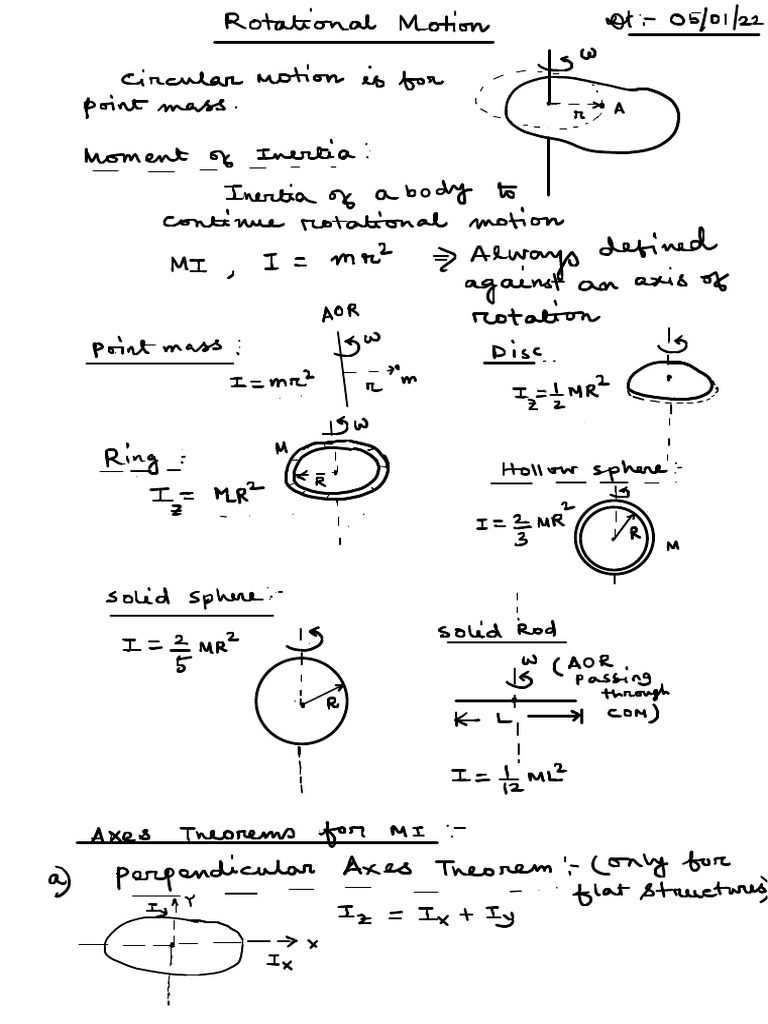 Rotational Motion
Dt :- 05/01/22
Circular Motion is for
point mass.
ω
r
A
Moment of Inertia :
Inertia of a body to
continue rotational motion
MI , I = mr² ⇒ Always defined
against an axis of
rotation
Point mass :
AOR
ω
I = mr²
r
m
Disc
I_z = 1/2 MR²
Ring :-
ω
M
R
I_z = MR²
Hollow sphere :-
I = 2/3 MR²
R
M
Solid sphere :-
I = 2/5 MR²
R
Solid Rod
ω (AOR
passing
through
COM)
L
I = 1/12 ML²
Axes Theorems for MI :-
a) Perpendicular Axes Theorem :- (only for
flat structures)
I_z = I_x + I_y
I_y
Y
X
I_x